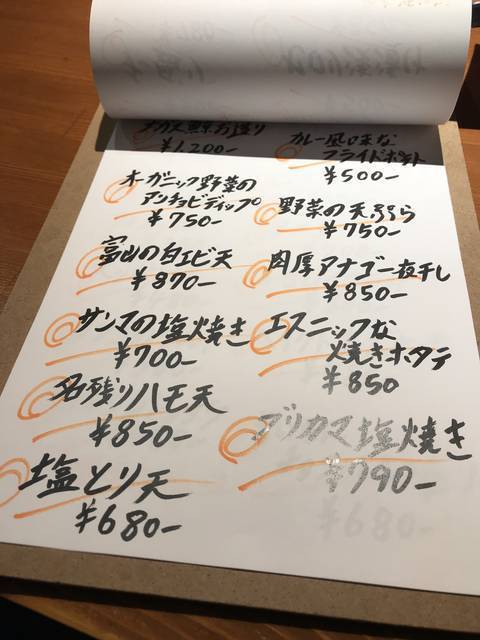 ¥1,200-
オーガニック野菜の
アンチョビディップ
¥750-
富山の白エビ天
¥870-
サンマの塩焼き
¥700-
名残りハモ天
¥850-
塩とり天
¥680-
カレー風味な
フライドポテト
¥500-
野菜の天ぷら
¥750-
肉厚アナゴ一夜干し
¥850-
エスニックな
焼きホタテ
¥850
ブリカマ塩焼き
¥790-